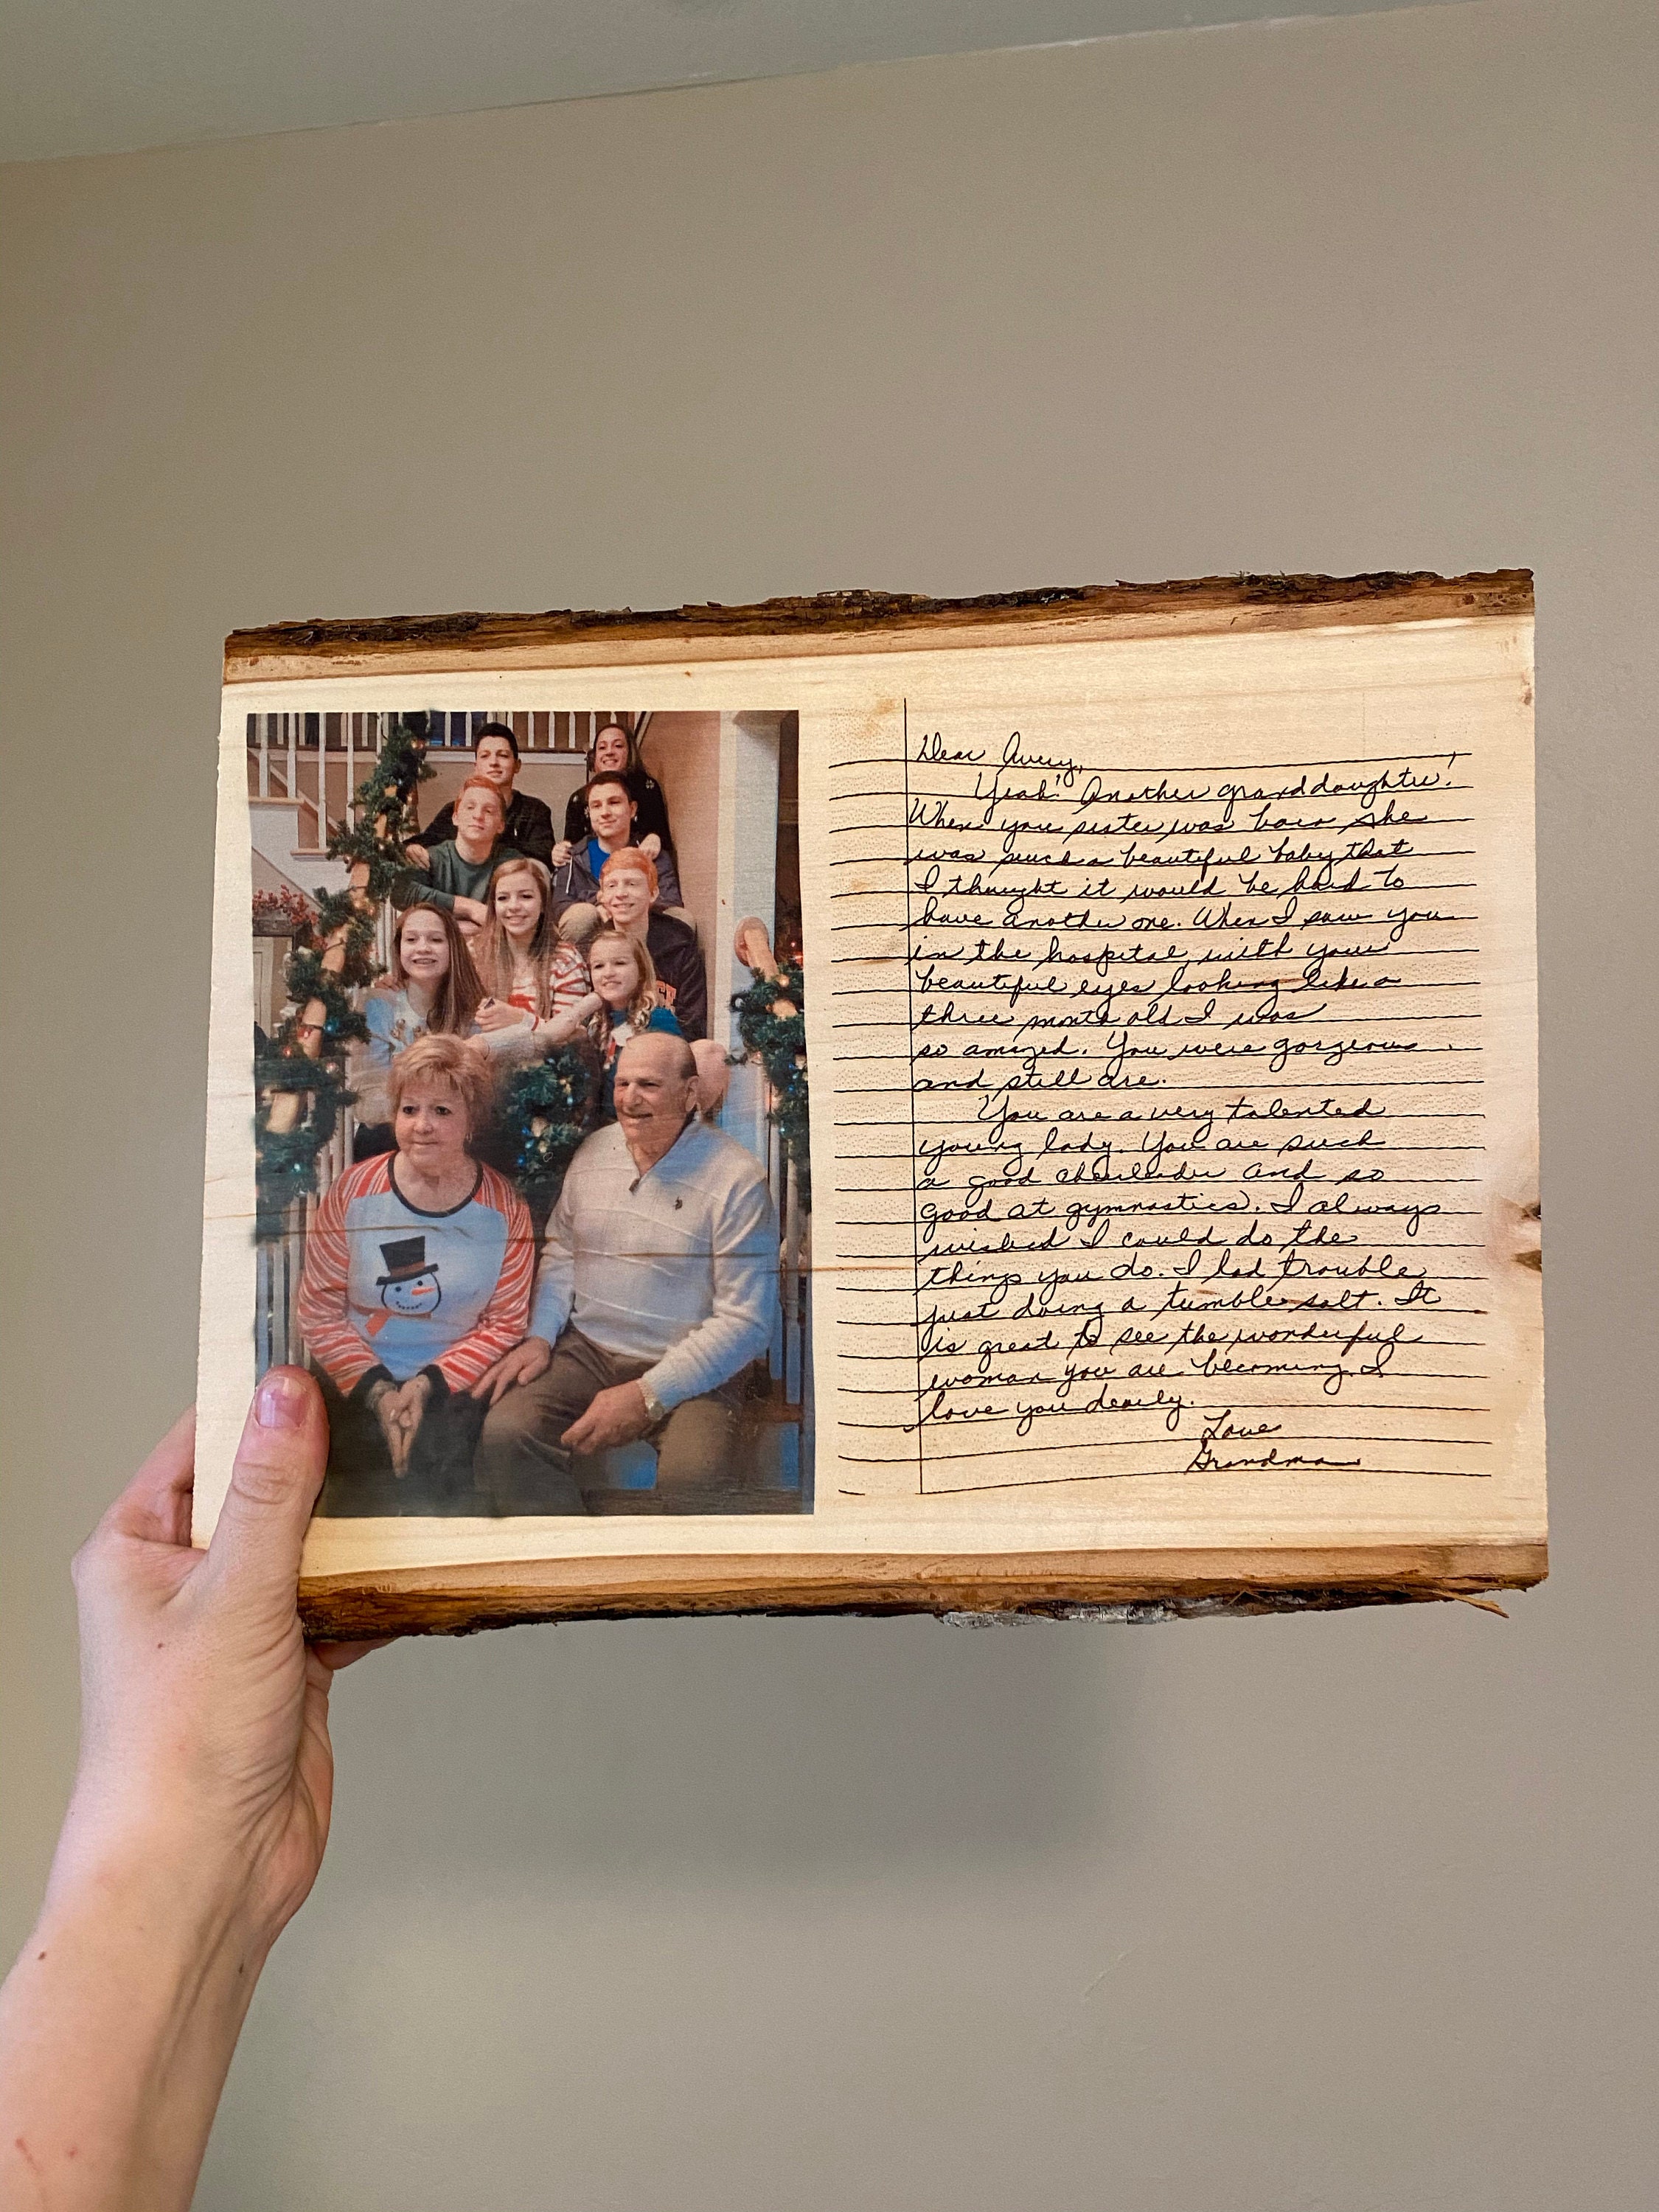 Dear Avery,
Yeah! Another granddaughter!
When you sister was born she
was such a beautiful baby that
I thought it would be hard to
have another one. When I saw you
in the hospital with your
beautiful eyes looking like a
three month old I was
so amazed. You were gorgeous
and still are.
You are a very talented
young lady. You are such
a good cheerleader and so
good at gymnastics. I always
wished I could do the
things you do. I had trouble
just doing a tumble salt. It
is great to see the wonderful
woman you are becoming. I
love you dearly.
Love
Grandma